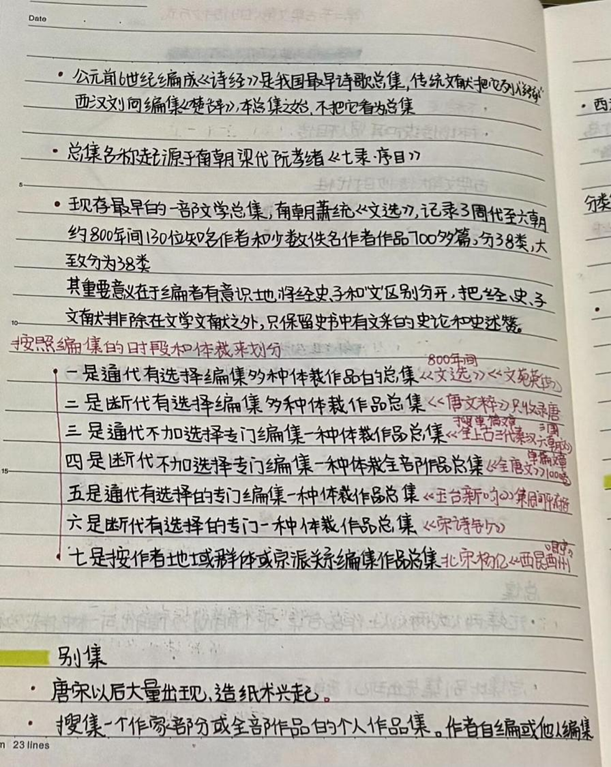 Date
• 公元前6世纪编成《诗经》是我国最早诗歌总集,传统文献把它列入
西汉刘向编集《楚辞》,本总集之始,不把它看为总集
• 总集名称起源于南朝梁代阮孝绪《七录·序目》
• 现存最早的一部文学总集,南朝萧统《文选》,记录了周代至六朝
约800年间130位知名作者和少数佚名作者作品700多篇,分38类,大
致分为38类
其重要意义在于编者有意识地,将经史子和"文"区别分开,把经、史、子
文献排除在文学文献之外,只保留史书中有文采的史论和史述赞。
按照编集的时段和体裁来划分
800年间
• 一是通代有选择编集多种体裁作品的总集《文选》《文苑英华》
二是断代有选择编集多种体裁作品总集《唐文粹》只收录唐
搜单篇文章
三是通代不加选择专门编集一种体裁作品总集《全上古三代秦汉六朝文》
单篇文章
四是断代不加选择专门编集一种体裁全部作品总集《全唐文》
五是通代有选择的专门编集一种体裁作品总集《玉台新咏》
六是断代有选择的专门一种体裁作品总集《宋诗钞》
• 七是按作者地域群体或宗派关系编集作品总集 北宋杨亿《西昆酬唱
别集
• 唐宋以后大量出现,造纸术兴起。
• 搜集一个作家部分或全部作品的个人作品集。作者自编或他人编集
n 23 lines
5
10
15
• 西
分类